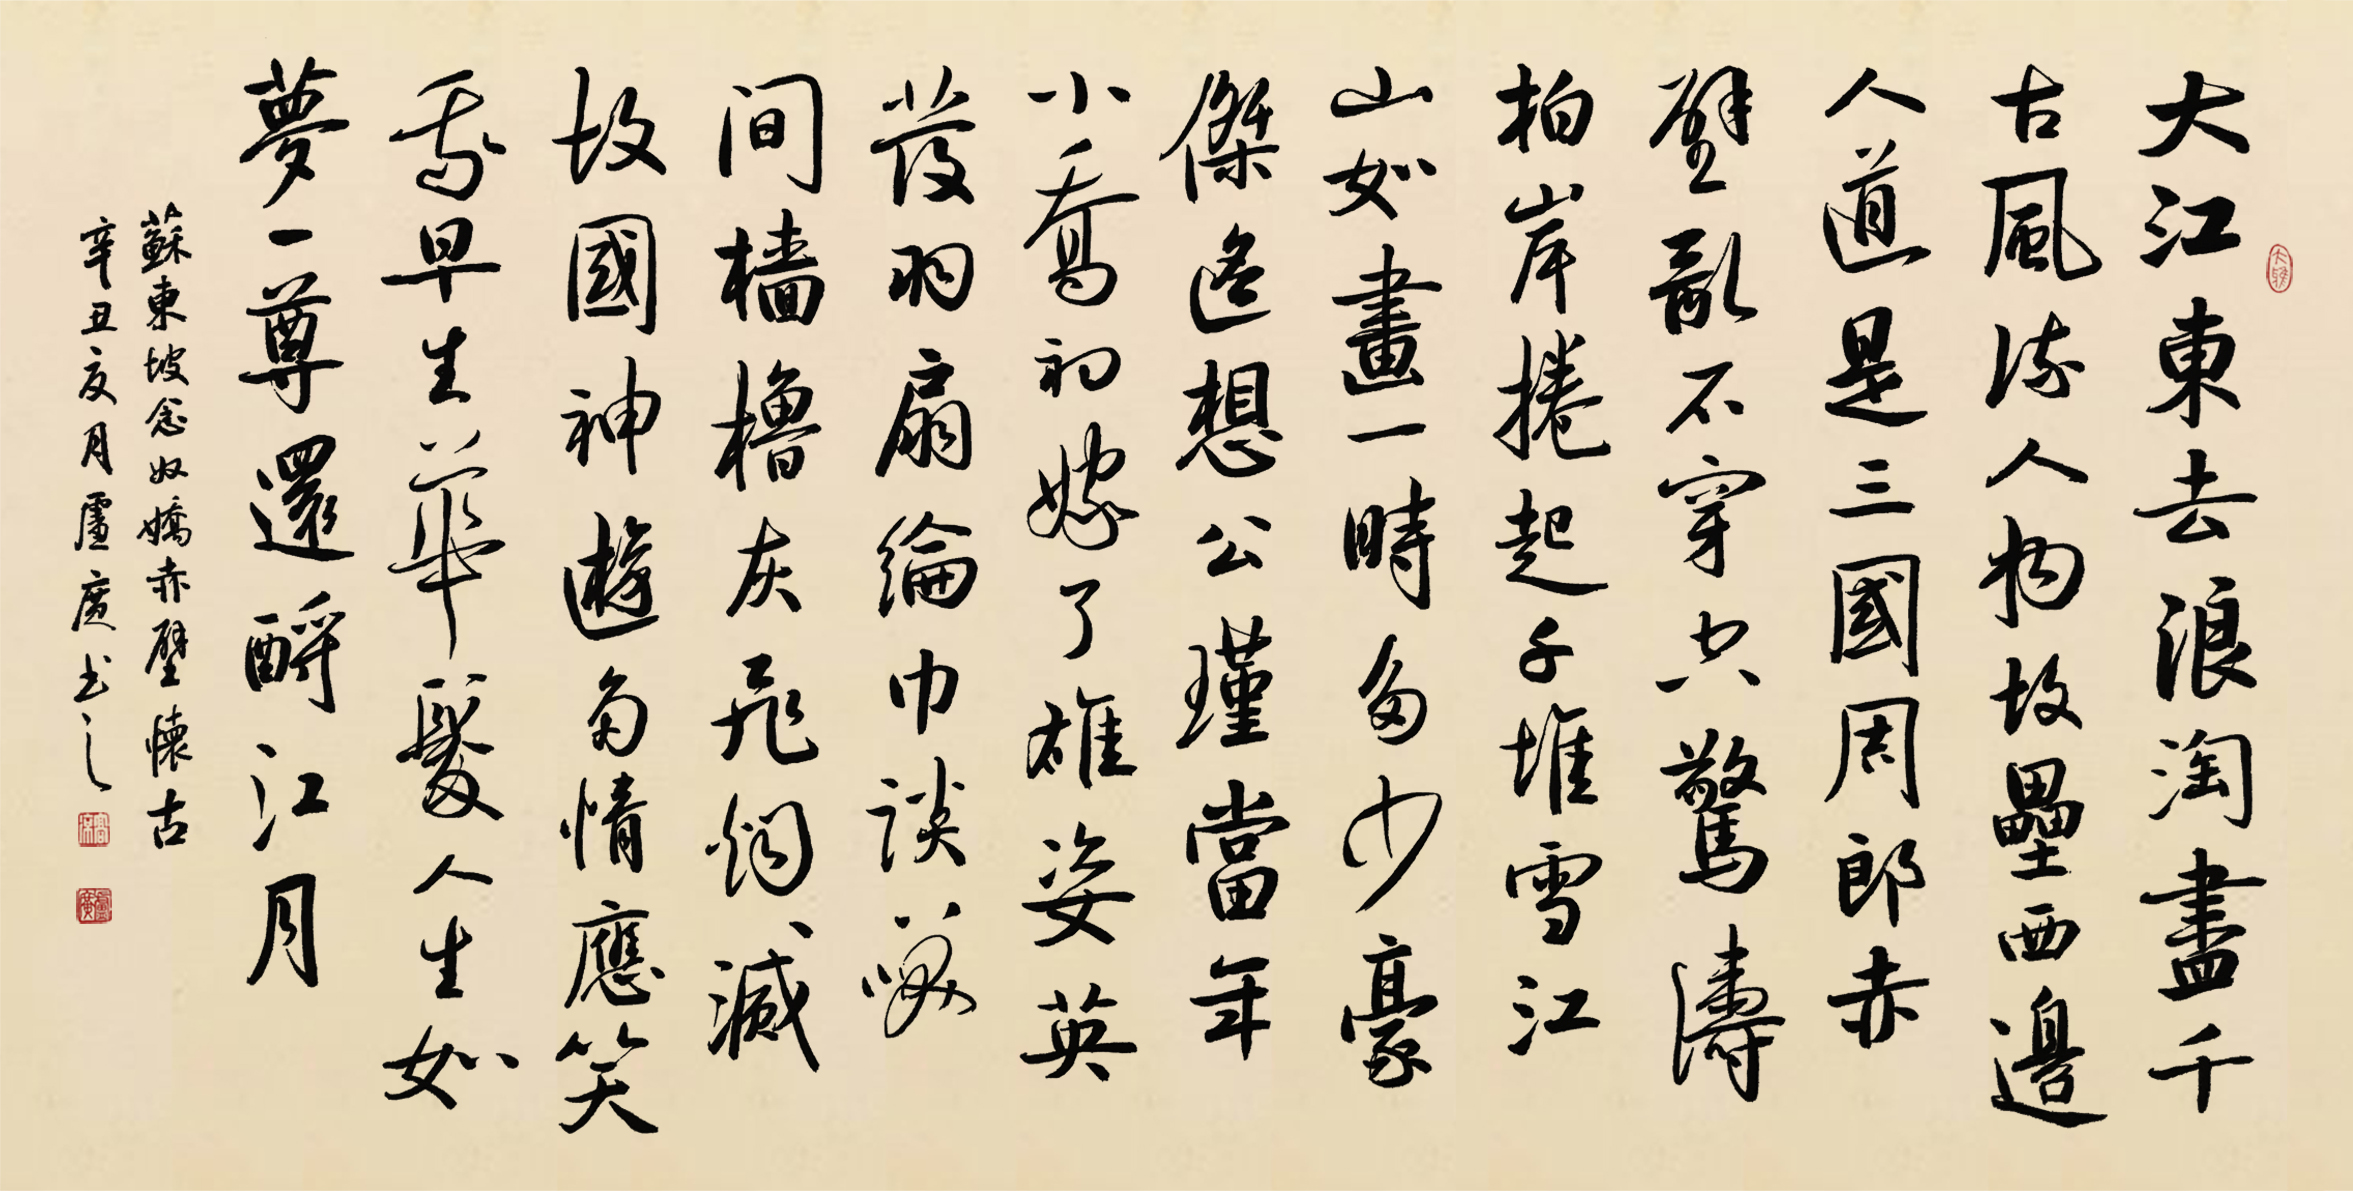 大江東去浪淘盡千
古風流人物故壘西邊
人道是三國周郎赤
壁亂石穿空驚濤
拍岸捲起千堆雪江
山如畫一時多少豪
傑遙想公瑾當年
小喬初嫁了雄姿英
發羽扇綸巾談笑
间檣櫓灰飛烟滅
故國神遊多情應笑
我早生華髮人生如
夢一尊還酹江月
蘇東坡念奴嬌赤壁懷古
辛丑夏月盧廣书之